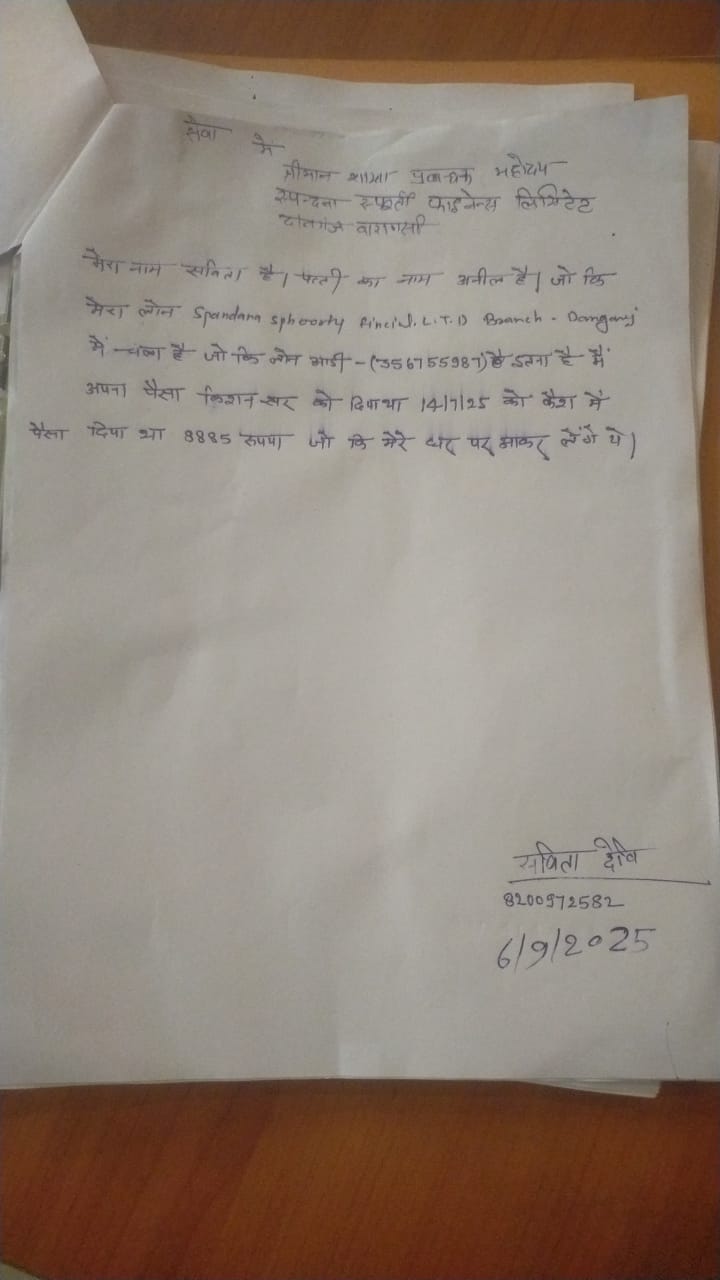 सेवा में
श्रीमान शाखा प्रबन्धक महोदय
स्पन्दना स्फूर्ती फाइनेन्स लिमिटेट
दानगंज वाराणसी
मेरा नाम सविता है। पत्नी का नाम अनील है। जो कि
मेरा लोन Spandana Sphoorty L.T.D Branch - Danganj
में चला है जो कि लोन आडी - (356755987) है इतना है मैं
अपना पैसा किशन सर को दिया था 14/7/25 को कैश में
पैसा दिया था 8885 रुपया जो कि मेरे घर पर आकर लेंगे ये।
सविता देवि
8200972582
6/9/2025